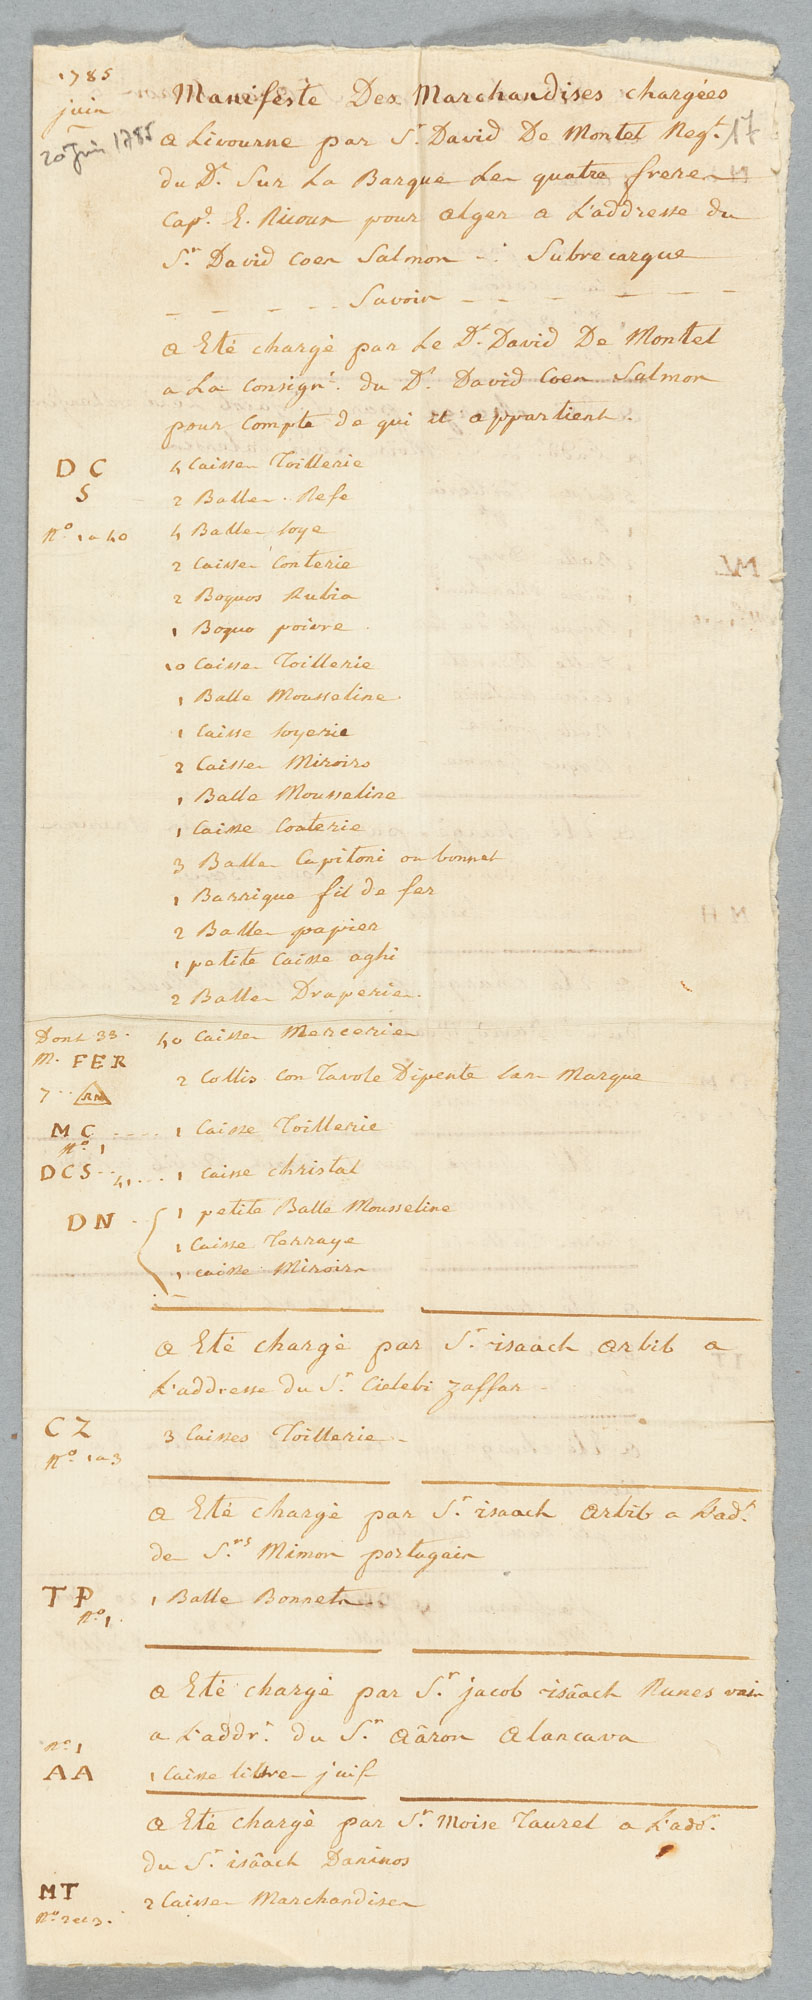 1785
juin
20 Juin 1785
17
Manifeste Des Marchandises chargées
a Livourne par Sr. David De Montel Negt.
du Dt. Sur La Barque Les quatre freres
Capne. E. Ricoux pour alger a L'addresse du
Sr. David Coen Salmon - Subrecargue
Savoir
a Eté chargé par Le Dt. David De Montel
a La Consigne. du Dt. David Coen Salmon
pour Compte de qui il appartient.
D C
S
No. 1 a 40
4 Caisses Toillerie
2 Balles Refe
4 Balles soye
2 Caisses Conterie
2 Boquos Rubia
1 Boquo poivre
10 Caisses Toillerie
1 Balle Mousseline
1 Caisse soyerie
2 Caisses Miroirs
1 Balle Mousseline
1 Caisse Conterie
3 Balles Capitoni ou bonnet
1 Barrique fil de fer
2 Balles papier
1 petite Caisse aghi
2 Balles Draperies.
Dont 33. 40 Caisses Merceries
M. FER
2 Collis Con Tavole Dipente san Marque
7 .. RM
MC .... 1 Caisse Toillerie
No. 1
DCS .. 41 ... 1 Caisse Christal
DN . 1 petite Balle Mousseline
1 Caisse Terraye
1 caisse Miroirs
a Eté chargé par Sr. isaach arbib a
L'addresse du Sr. Cielebi Zaffar
CZ 3 Caisses Toillerie
No. 1 a 3
a Eté chargé par Sr. isaach arbib a L'adr.
de Srs. Mimon portugais
TP 1 Balle Bonnets
No. 1.
a Eté chargé par Sr. jacob isâach Nunes vais
a L'addr. du Sr. Aâron alancava
No. 1
AA 1 Caisse livres juif
a Eté chargé par Sr. Moise Taurel a L'addr.
du Sr. isâach Daninos
MT 2 Caisses Marchandises
No. 2 et 3.